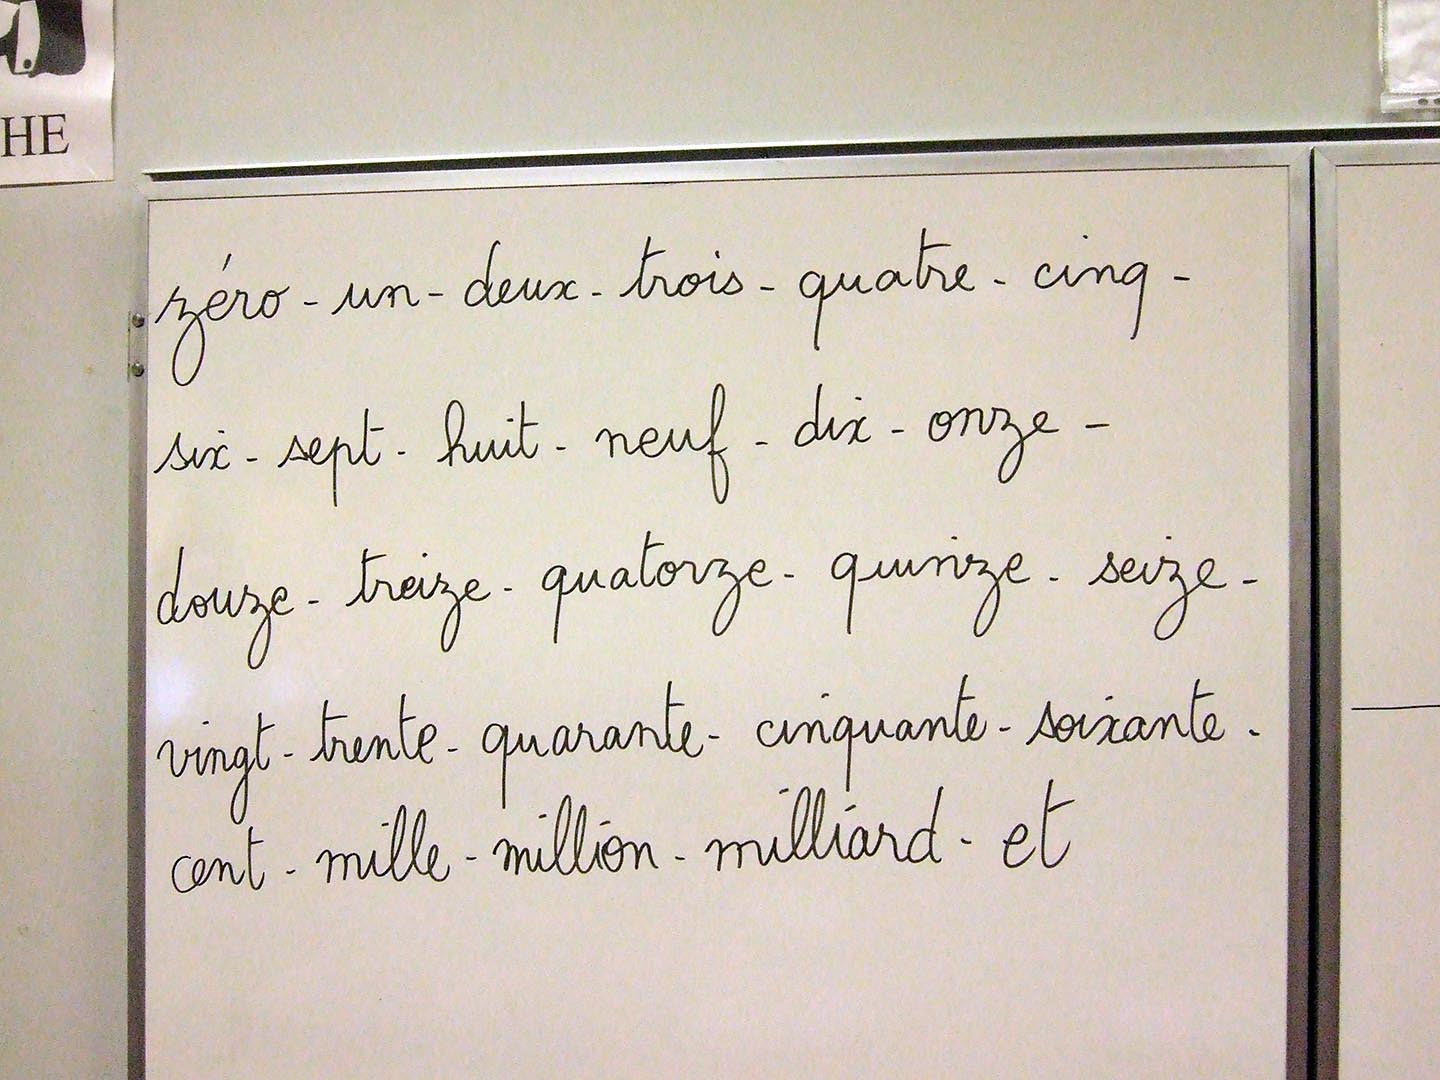 HE
zéro - un - deux - trois - quatre - cinq -
six - sept - huit - neuf - dix - onze -
douze - treize - quatorze - quinze - seize -
vingt - trente - quarante - cinquante - soixante -
cent - mille - million - milliard - et